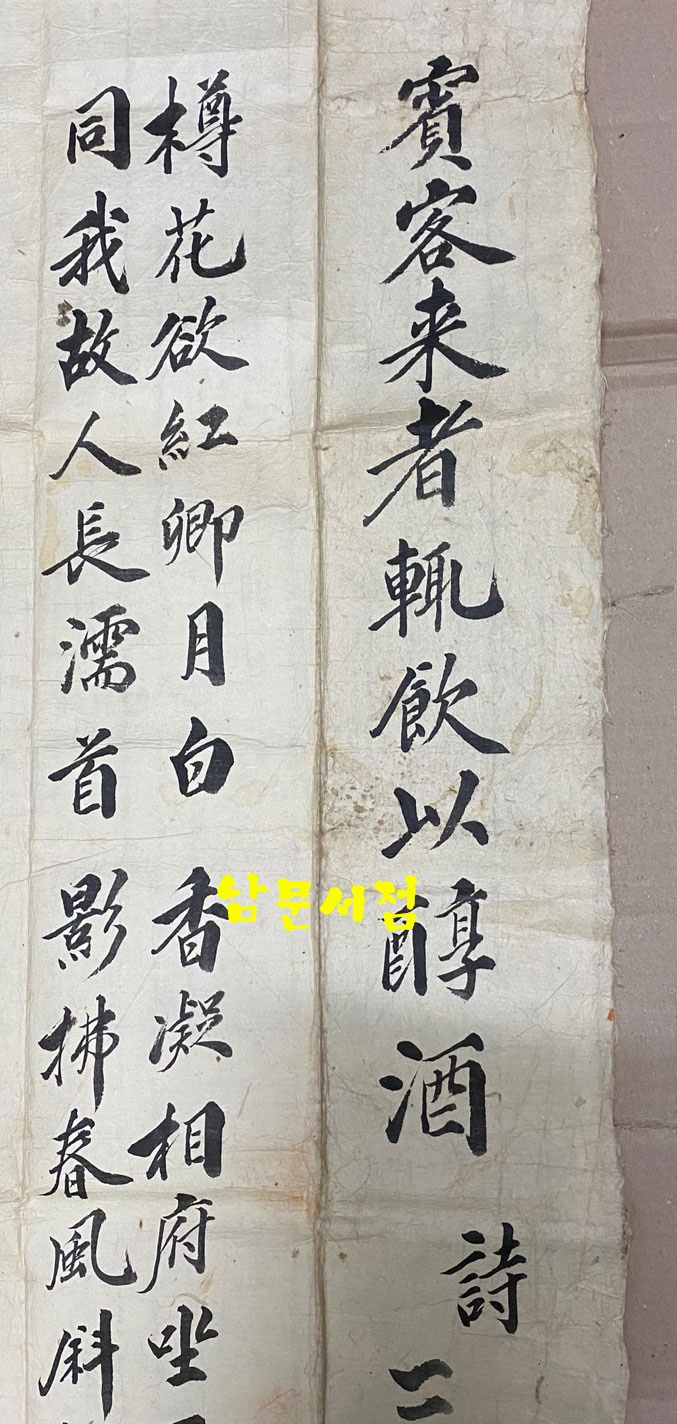 賓客来者輒飮以醇酒
詩二
樽花欲紅卿月白 香凝相府坐
同我故人長濡首 影拂春風斜
남문서점